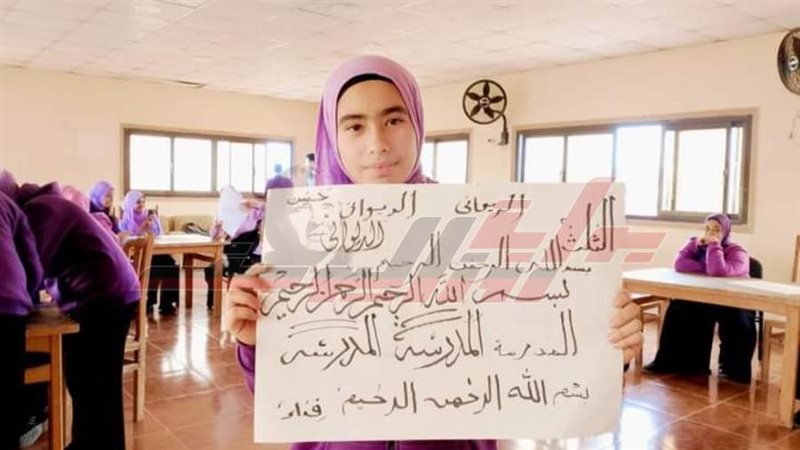 الثلث الديواني الديواني
الديواني
بسم الله الرحمن الرحيم
بسم الله الرحمن الرحيم الرحمن الرحيم
المدرسة المدرسة المدرسة
بسم الله الرحمن الرحيم